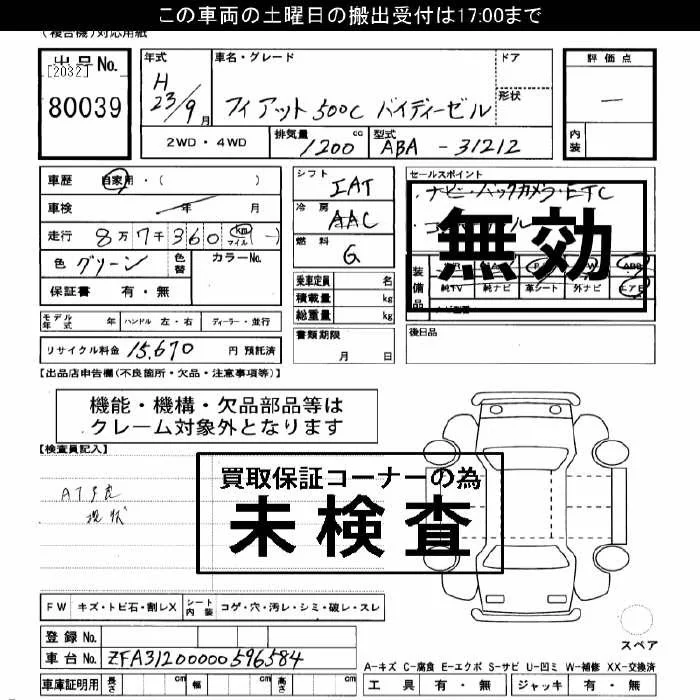 この車両の土曜日の搬出受付は17:00まで
(複合機)対応用紙
出品No.
[2032]
80039
年式
H
23/9月
車名・グレード
フィアット500C バイディーゼル
ドア
形状
評価点
―
内装
2WD・4WD
排気量 1200 cc
型式 ABA - 31212
車歴 自家用・( )
車検 年 月
走行 8万7千360 km マイル (―)
色 グリーン 色替 カラーNo.
保証書 有・無
シフト IAT
冷房 AAC
燃料 G
乗車定員 名
積載量 kg
総重量 kg
セールスポイント
・ナビ・バックカメラ・ETC
無効
装備品
ABS
純TV 純ナビ 革シート 外ナビ エアB
モデル年式 年 ハンドル 左・右 ディーラー・並行
書類期限
月 日
後日品
リサイクル料金 15,670 円 預託済
【出品店申告欄(不良箇所・欠品・注意事項等)】
機能・機構・欠品部品等は
クレーム対象外となります
【検査員記入】
買取保証コーナーの為
未検査
AT不良
現状
FW キズ・トビ石・割レX シート内装 コゲ・穴・汚レ・シミ・破レ・スレ
登録No.
車台No. ZFA31200000596584
車庫証明用 長さ cm 幅 cm 高さ cm
スペア
A-キズ C-腐食 E-エクボ S-サビ U-凹ミ W-補修 XX-交換済
工具 有・無 ジャッキ 有・無